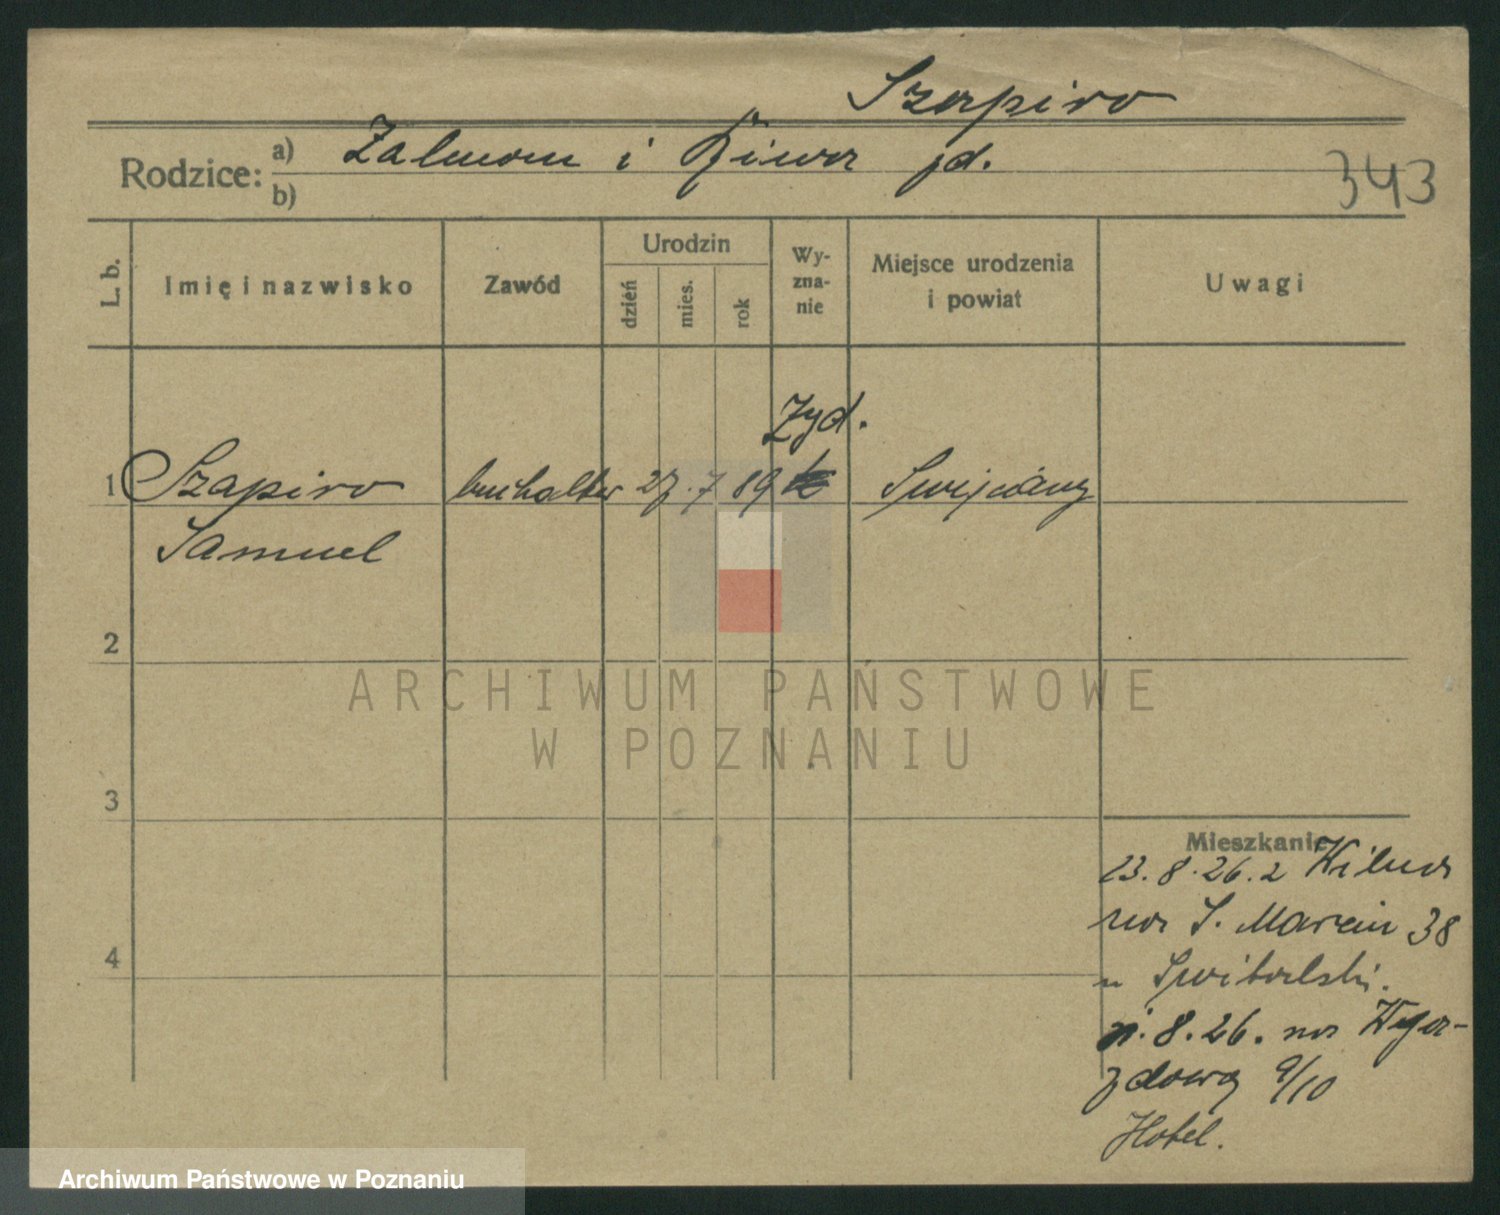 Szapiro
Rodzice: a) Zalman i Rywa jd.
b)
343
L. b.
Imię i nazwisko
Zawód
Urodzin
dzień
mies.
rok
Wy-
zna-
nie
Miejsce urodzenia
i powiat
Uwagi
Żyd.
1 Szapiro buchalter 27. 7 89
Samuel
2
3
4
ARCHIWUM PAŃSTWOWE
W POZNANIU
Mieszkanie
23.8.26. z Wilna
na S. Marcin 38
u Switalski.
.8.26. na Wyja-
zdową 9/10
Hotel.
Archiwum Państwowe w Poznaniu